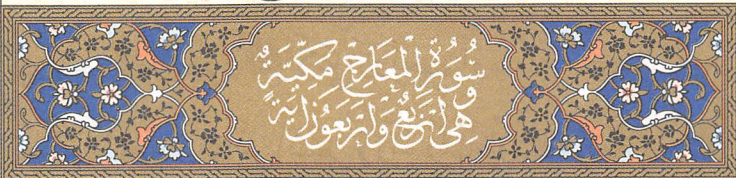 سُورَةُ الْمَعَارِجِ مَكِّيَّةٌ
وَهِيَ أَرْبَعٌ وَأَرْبَعُونَ آيَةً